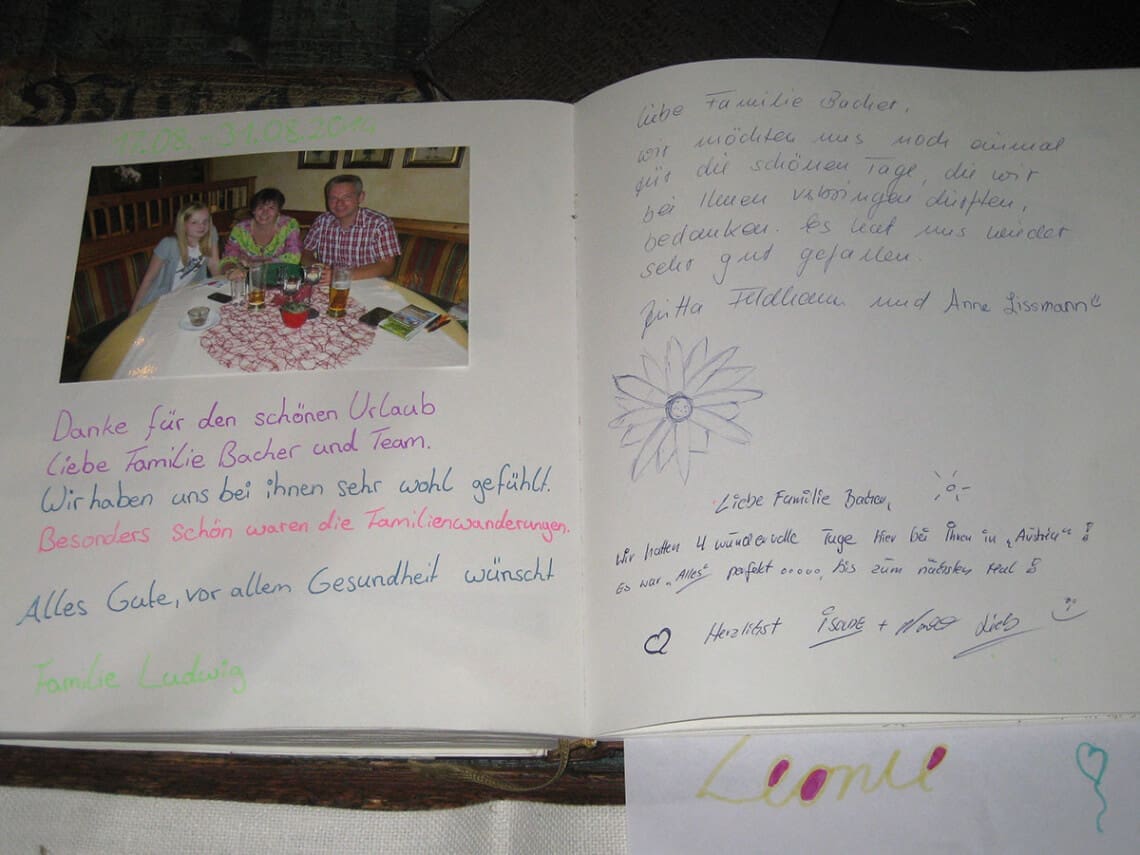 17.08. - 31.08.2014
Danke für den schönen Urlaub
liebe Familie Bacher und Team.
Wir haben uns bei ihnen sehr wohl gefühlt.
Besonders schön waren die Familienwanderungen.
Alles Gute, vor allem Gesundheit wünscht
Familie Ludwig
Liebe Familie Bacher,
wir möchten uns noch einmal
für die schönen Tage, die wir
bei Ihnen verbringen durften,
bedanken. Es hat uns wieder
sehr gut gefallen.
und Anne Lissmann
Liebe Familie Bacher,
Wir hatten 4 wundervolle Tage hier bei Ihnen in "Austria" !
Es war "Alles" perfekt ....., bis zum nächsten Mal !
Herzlichst + Lieb
Leonie